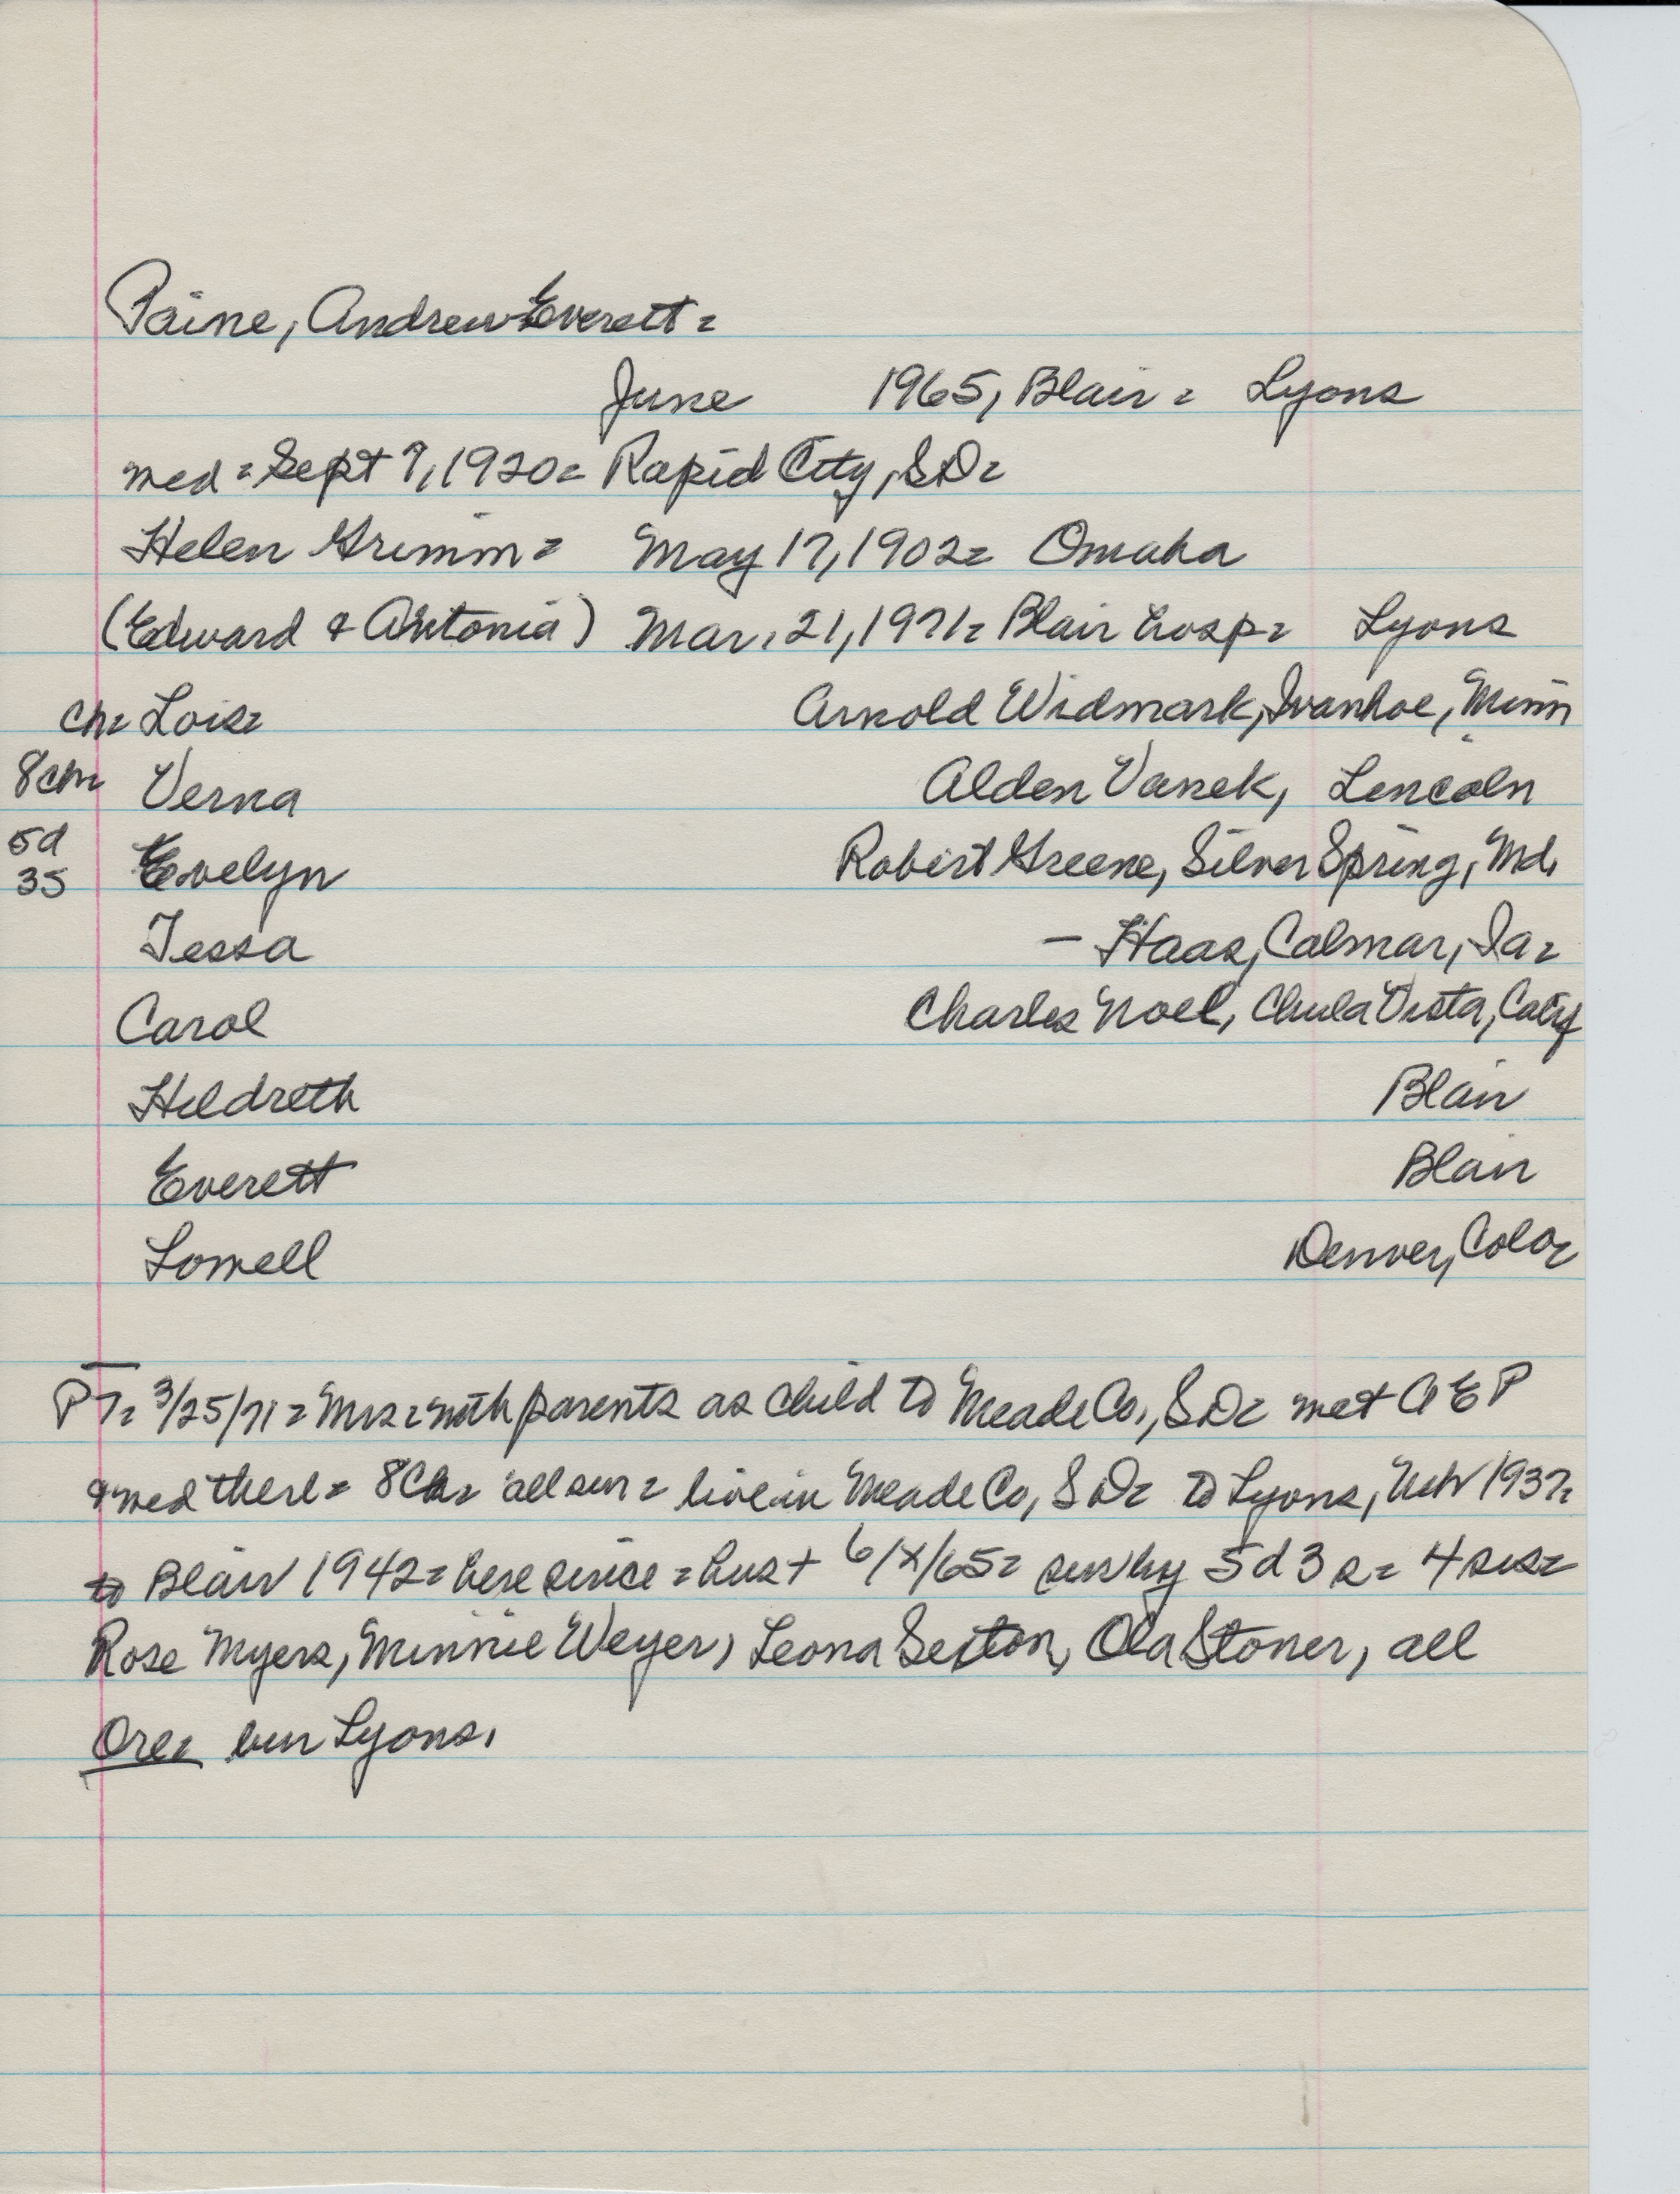 Paine, Andrew Everett =
June 1965, Blair = Lyons
med = Sept 7, 1920 = Rapid City, SD =
Helen Grimm = May 17, 1902 = Omaha
(Edward & Antonia) Mar. 21, 1971 = Blair hosp = Lyons
ch = Lois = Arnold Widmark, Ivanhoe, Minn
8 ch = Verna Alden Vanek, Lincoln
5d
3s Evelyn Robert Greene, Silver Spring, Md.
Tessa — Haas, Calmar, Ia =
Carol Charles Noel, Chula Vista, Calif
Hildreth Blair
Everett Blair
Lowell Denver, Colo =
PT = 3/25/71 = Mrs = with parents as child to Meade Co., SD = met A E P
& med there = 8 Ch = all sur = live in Meade Co, SD = to Lyons, Neb 1937 =
to Blair 1942 = here since = hus + 6/x/65 = sur by 5 d 3 s = 4 sis =
Rose Myers, Minnie Weyer, Leona Sexton, Ola Stoner, all
Ore = bur Lyons.